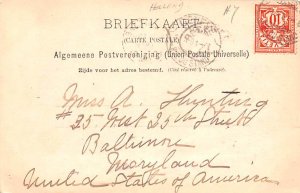 BRIEFKAART
(CARTE POSTALE)
Algemeene Postvereeniging (Union Postale Universelle)
Zijde voor het adres bestemd. (Côté réservé à l'adresse.)
Miss A.
25 West 25th Street
Baltimore
Maryland
United States of America